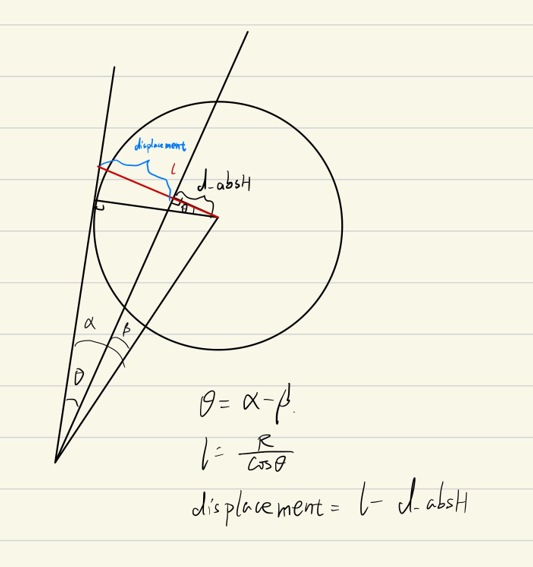 displacement
l
d_absH
θ
α
β
θ
θ = α - β.
l = R / cosθ
displacement = l - d_absH